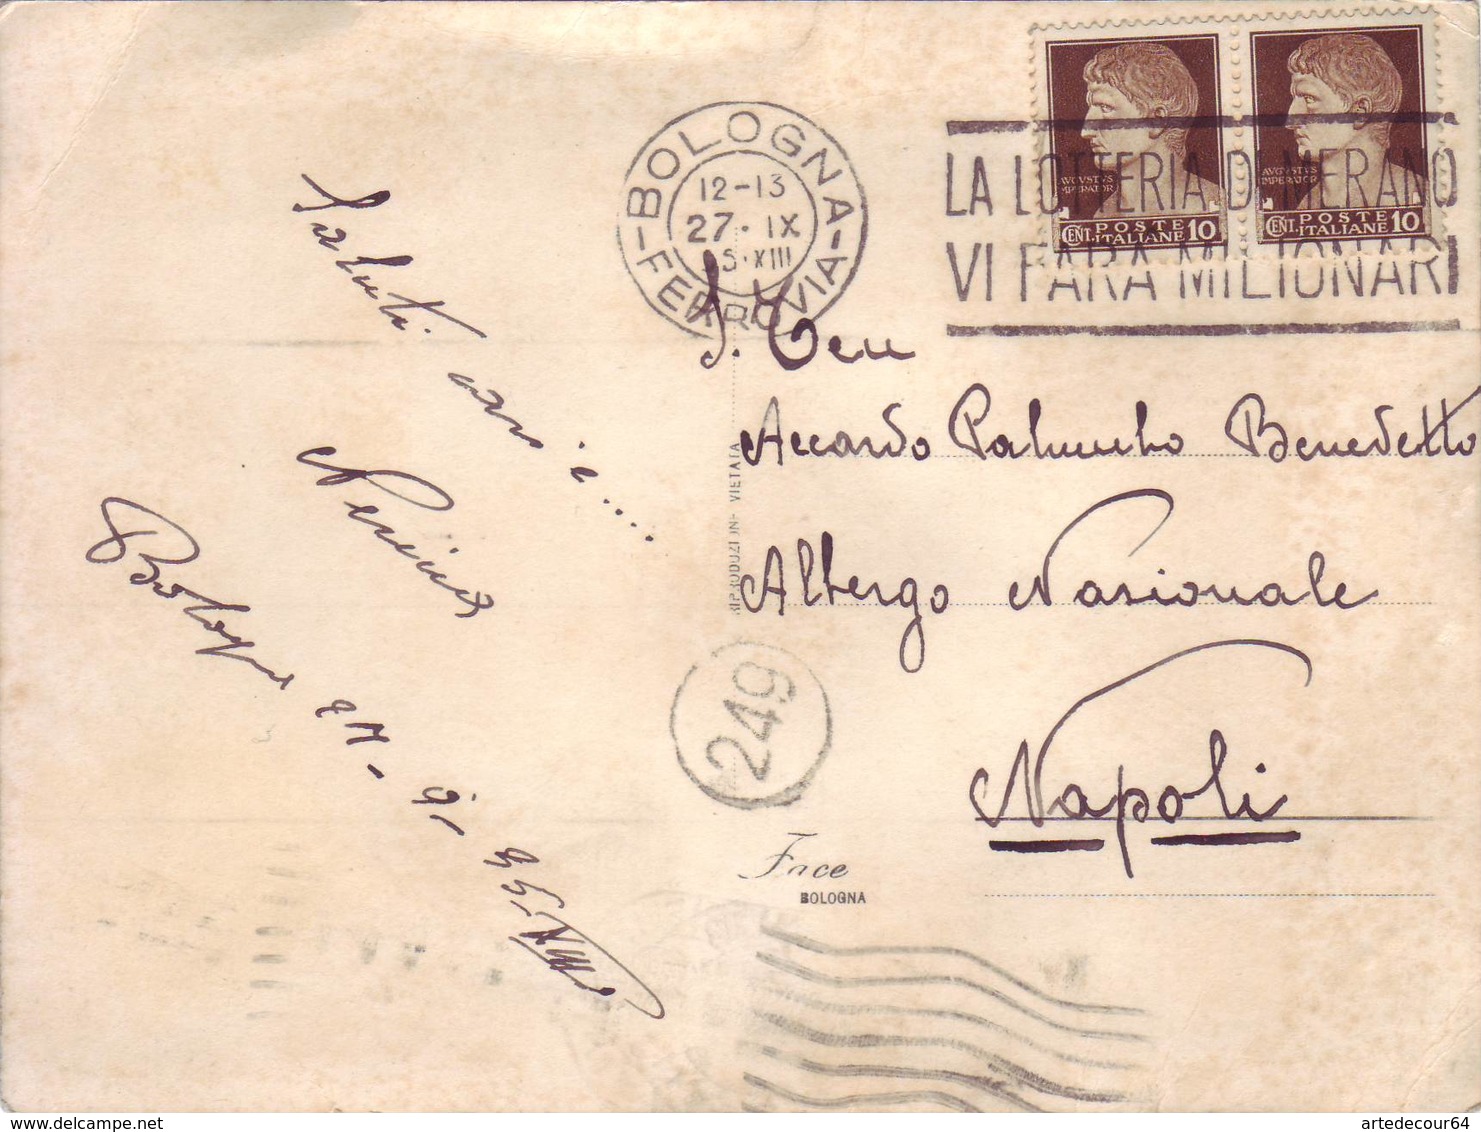 BOLOGNA
12-13
27·IX
35·XIII
-FERROVIA-
LA LOTTERIA DI MERANO
VI FARA MILIONARI
AVGVSTVS
IMPERATOR
POSTE
CENT. ITALIANE 10
AVGVSTVS
IMPERATOR
POSTE
CENT. ITALIANE 10
Saluti cari e....
Nerina
Bologna 27-9-35 XIII
S. Ten
Accardo Palumbo Benedetto
Albergo Nazionale
Napoli
RIPRODUZIONE VIETATA
249
Face
BOLOGNA
artedecour64